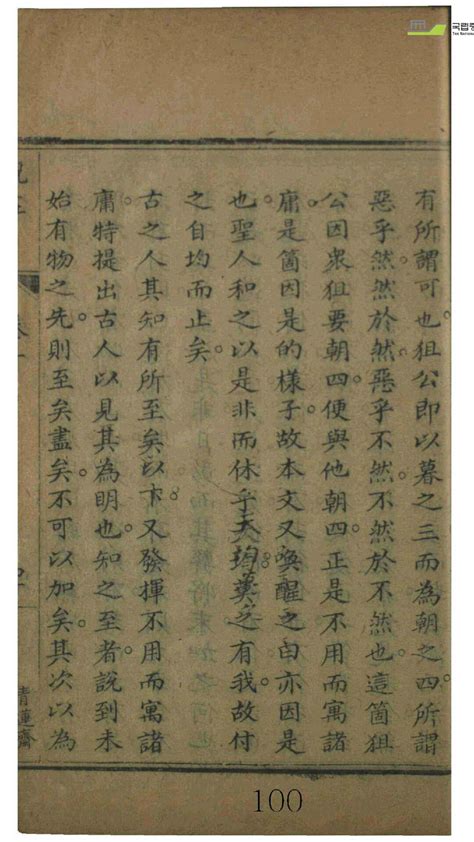 有所謂可也狙公即以暮之三而為朝之四所謂
惡乎然然於然惡乎不然不然於不然也這箇狙
公因衆狙要朝四便與他朝四正是不用而寓諸
庸是箇因是的樣子故本文又喚醒之曰亦因是
也聖人和之以是非而休乎天均莫之有我故付
之自均而止矣
古之人其知有所至矣以下又發揮不用而寓諸
庸特提出古人以見其為明也知之至者說到未
始有物之先則至矣盡矣不可以加矣其次以為
青蓮齋
100
국립중